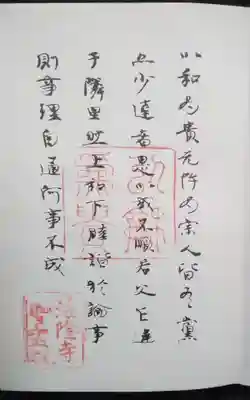 以和為貴无忤為宗人皆有黨
亦少達者是以或不順君父乍違
于隣里然上和下睦諧於論事
則事理自通何事不成
法隆寺